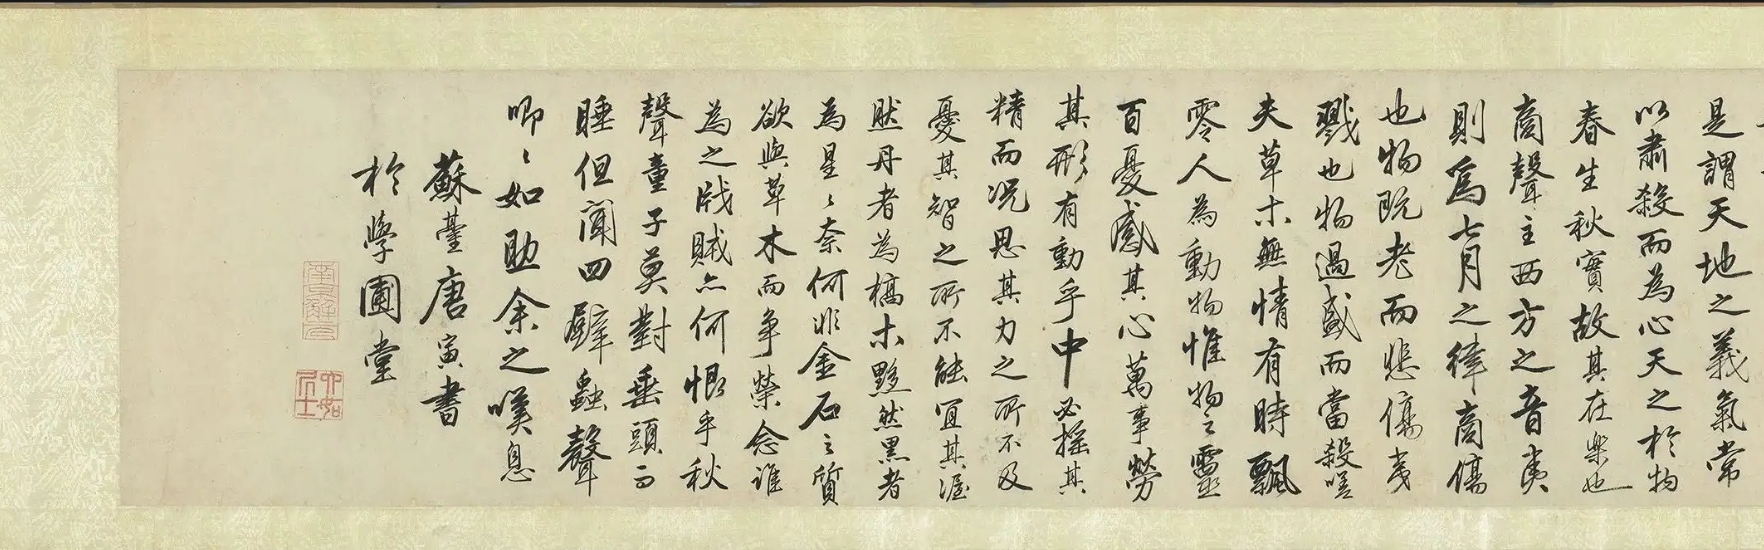 是謂天地之義氣常
以肅殺而為心天之於物
春生秋實故其在樂也
商聲主西方之音夷
則為七月之律商傷
也物既老而悲傷夷
戮也物過盛而當殺嗟
夫草木無情有時飄
零人為動物惟物之靈
百憂感其心萬事勞
其形有動乎中必搖其
精而況思其力之所不及
憂其智之所不能宜其渥
然丹者為槁木黟然黑者
為星〻奈何非金石之質
欲與草木而爭榮念誰
為之戕賊亦何恨乎秋
聲童子莫對垂頭而
睡但聞四壁蟲聲
唧〻如助余之嘆息
蘇臺唐寅書
於學圃堂
南京解元
六如居士